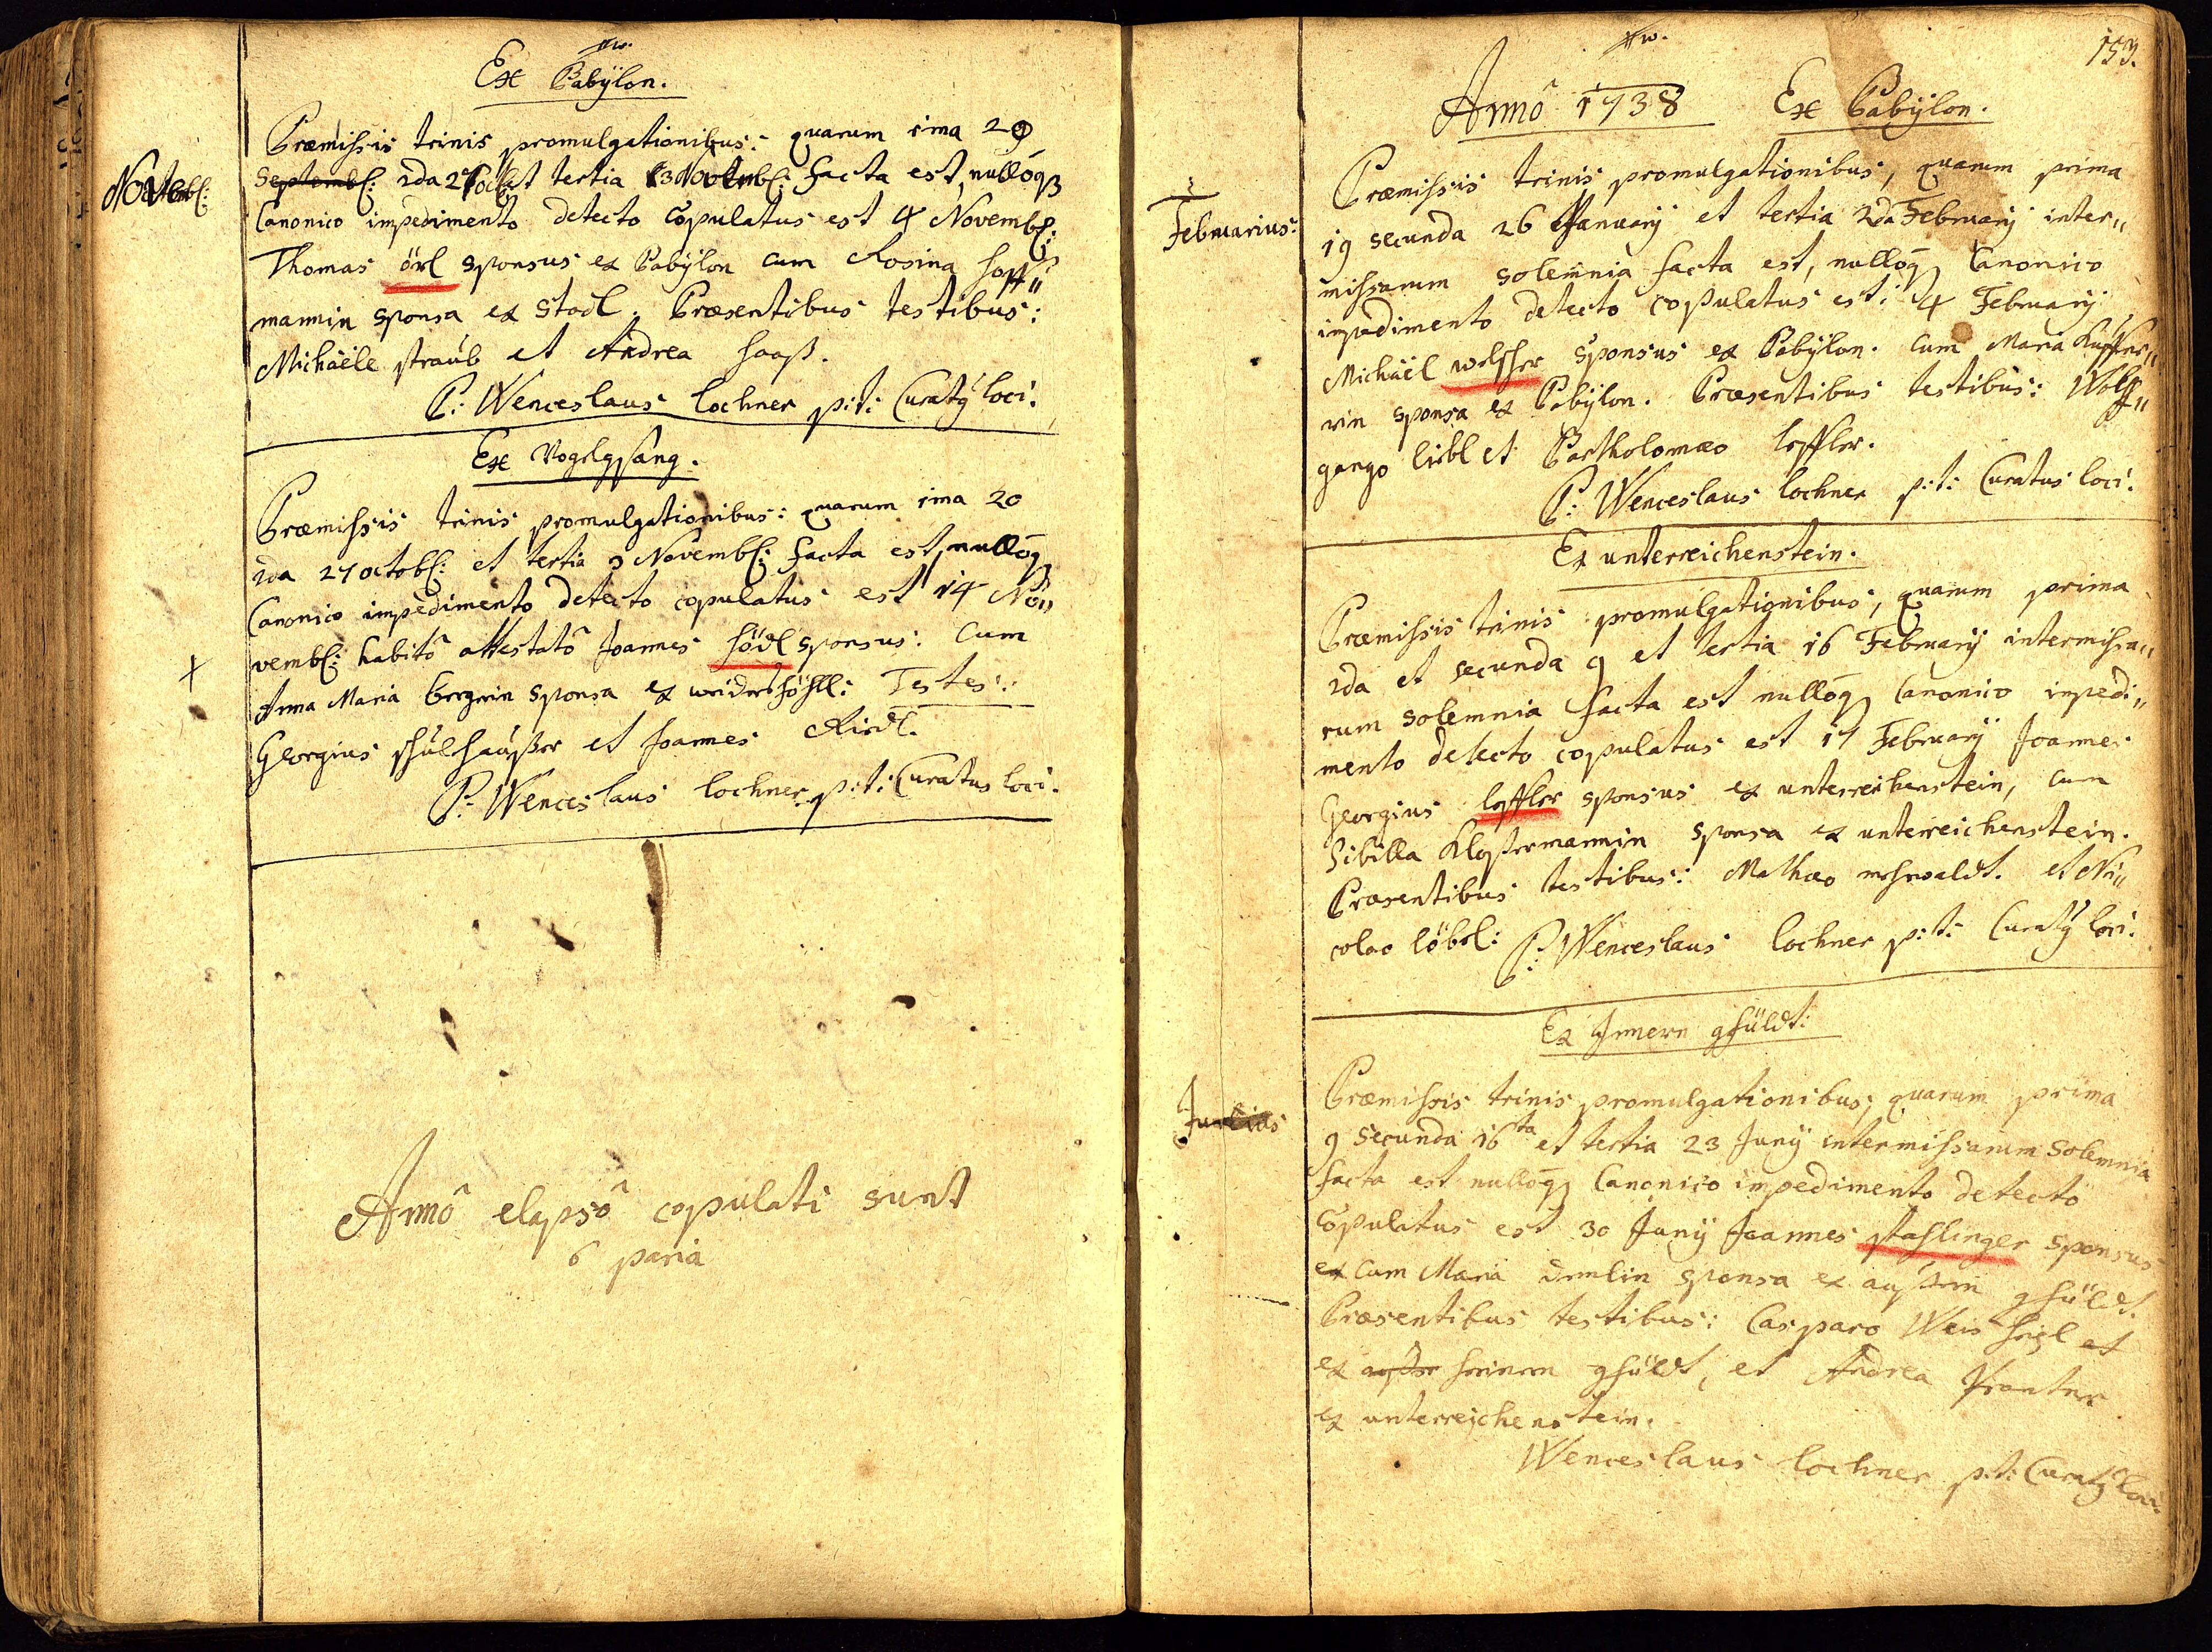 Ex Babÿlon.
Novemb:
Præmissis trinis promulgationibus: quarum 1ma 20
Septemb: 2da 27 octb: et tertia 3 Novemb: facta est, nullóq;
Canonico impedimento detecto copulatus est 4 Novemb:
Thomas örl sponsus ex Babÿlon cum Rosina Hoff„
mannin sponsa ex Stodl. Præsentibus testibus:
Michäele straub et Andrea haaß.
P: Wenceslaus Lochner p:t: Curatq loci.
Ex Vogelgsang.
Præmissis trinis promulgationibus: quarum 1ma 20
2da 27 octob: et tertia 3 Novemb: facta est, nullóq;
Canonico impedimento detecto copulatus est 14 No„
vemb: habitô attestatô Joannes södl sponsus: Cum
Anna Maria sponsa ex Testes:
Georgius et Joannes Riedl.
P: Wenceslaus Lochner p:t: Curatus loci.
Annô elapsô copulati sunt
6 paria
153.
Annô 1738 Ex Babÿlon.
Februarius:
Præmissis trinis promulgationibus, quarum prima
19 secunda 26 Januarÿ et tertia 2da Februarÿ inter„
missarum solemnia facta est, nullóq; Canonico
impedimento detecto copulatus est: 4 Februarÿ
Michäel sponsus ex Babÿlon. Cum Maria
rin sponsa ex Babÿlon. Præsentibus testibus: Wolff„
gango liebl et Bartholomæo löffler.
P: Wenceslaus Lochner p:t: Curatus loci.
Ex unterreichenstein.
Præmissis trinis promulgationibus, quarum prima
2da et secunda 9 et tertia 16 Februarÿ intermissa„
rum solemnia facta est nullóq; Canonico impedi„
mento detecto copulatus est 17 Februarÿ Joannes
Georgius löffler sponsus ex unterreichenstein, Cum
Sibilla Klostermannin sponsa ex unterreichenstein.
Præsentibus testibus: Mathæo et Ni„
colao löbl: P: Wenceslaus Lochner p:t: Curatq loci.
Ex Innern gfüldt:
Junius
Præmissis trinis promulgationibus, quarum prima
9 secunda 16ta et tertia 23 Junÿ intermissarum solemnia
facta est nullóq; Canonico impedimento detecto
copulatus est 30 Junÿ Joannes stahlinger sponsus
ex Cum Maria sponsa ex gfüldt.
Præsentibus testibus: Casparo et
ex gfüldt, et Andrea
ex unterreichenstein.
Wenceslaus Lochner p:t: Curatq loci.